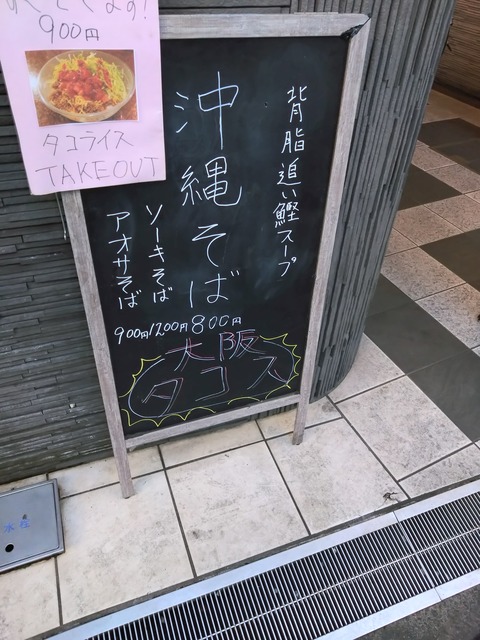 ってます!
900円
タコライス
TAKEOUT
背脂追い鰹スープ
沖縄そば
ソーキそば
アオサそば
900円 1200円 800円
大阪
タコス